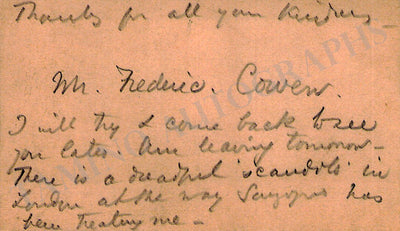 Thanks for all your kindness –
Mr. Frederic. Cowen.
I will try & come back & see
you later. Am leaving tomorrow –
There is a dreadful 'scandols' in
London at the way has
been treating me –